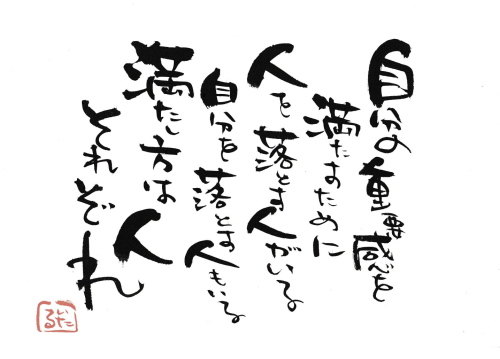 自分の重要感を
満たすために
人を落とす人がいる
自分を落とす人もいる
満たし方は人
それぞれ